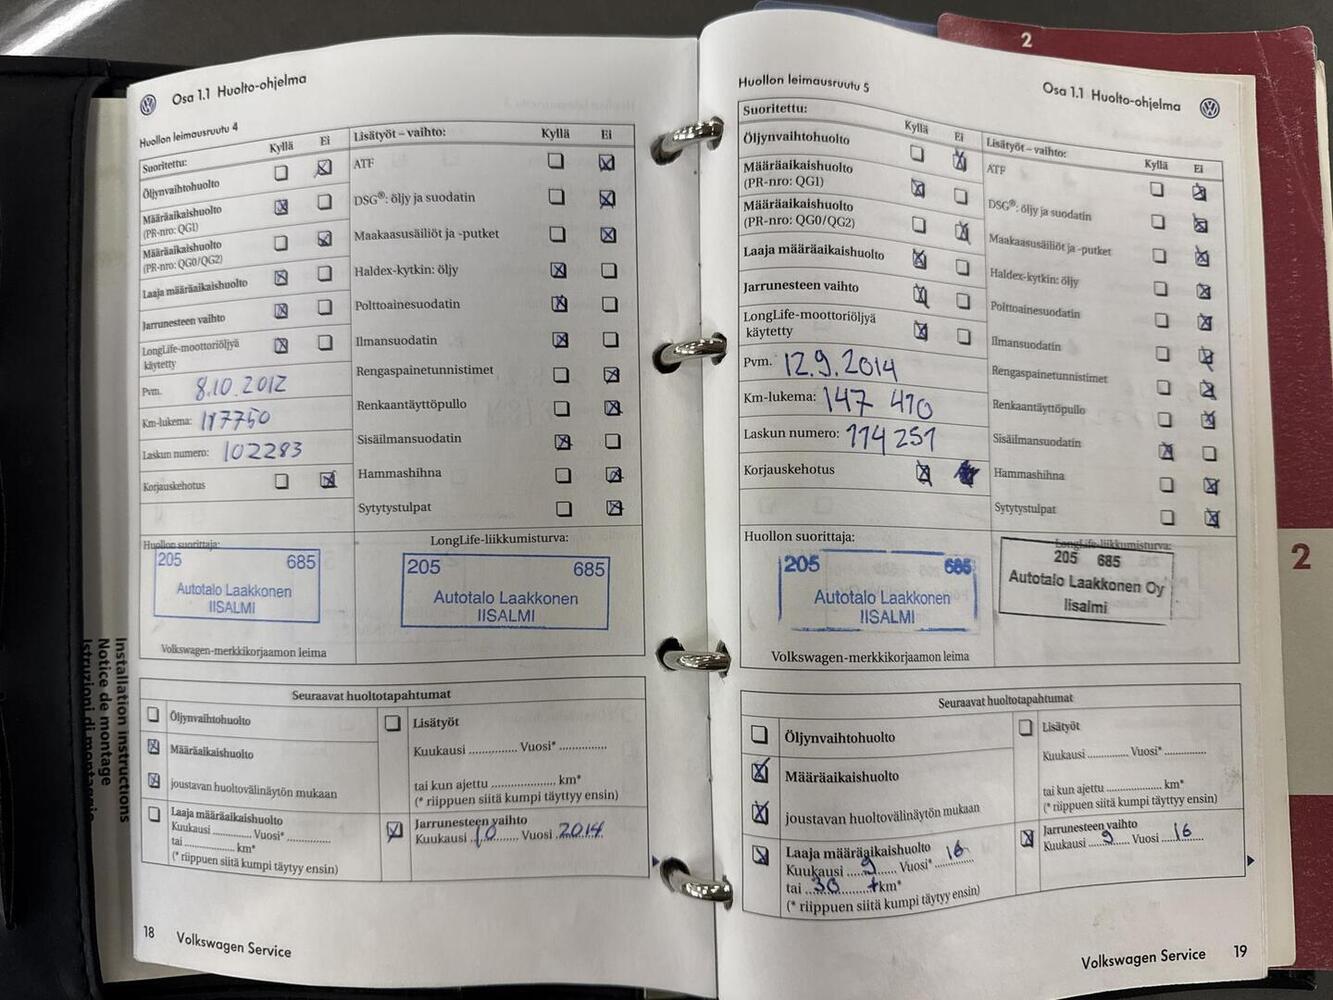 Osa 1.1 Huolto-ohjelma
Huollon leimausruutu 4
Suoritettu:
Kyllä
Ei
Öljynvaihtohuolto
Määräaikaishuolto
(PR-nro: QG1)
Määräaikaishuolto
(PR-nro: QG0/QG2)
Laaja määräaikaishuolto
Jarrunesteen vaihto
LongLife-moottoriöljyä
käytetty
Pvm. 8.10.2012
Km-lukema: 117750
Laskun numero: 102283
Korjauskehotus
Lisätyöt – vaihto:
Kyllä
Ei
ATF
DSG®: öljy ja suodatin
Maakaasusäiliöt ja -putket
Haldex-kytkin: öljy
Polttoainesuodatin
Ilmansuodatin
Rengaspainetunnistimet
Renkaantäyttöpullo
Sisäilmansuodatin
Hammashihna
Sytytystulpat
Huollon suorittaja:
205 685
Autotalo Laakkonen
IISALMI
LongLife-liikkumisturva:
205 685
Autotalo Laakkonen
IISALMI
Volkswagen-merkkikorjaamon leima
Seuraavat huoltotapahtumat
Öljynvaihtohuolto
Määräaikaishuolto
joustavan huoltovälinäytön mukaan
Laaja määräaikaishuolto
Kuukausi ............ Vuosi* ..............
tai .................. km*
(* riippuen siitä kumpi täyttyy ensin)
Lisätyöt
Kuukausi ............... Vuosi* ...............
tai kun ajettu .................... km*
(* riippuen siitä kumpi täyttyy ensin)
Jarrunesteen vaihto
Kuukausi 10 Vuosi 2014
18 Volkswagen Service
2
Huollon leimausruutu 5
Osa 1.1 Huolto-ohjelma
Suoritettu:
Kyllä
Ei
Öljynvaihtohuolto
Määräaikaishuolto
(PR-nro: QG1)
Määräaikaishuolto
(PR-nro: QG0/QG2)
Laaja määräaikaishuolto
Jarrunesteen vaihto
LongLife-moottoriöljyä
käytetty
Pvm. 12.9.2014
Km-lukema: 147 410
Laskun numero: 114251
Korjauskehotus
Lisätyöt – vaihto:
Kyllä
Ei
ATF
DSG®: öljy ja suodatin
Maakaasusäiliöt ja -putket
Haldex-kytkin: öljy
Polttoainesuodatin
Ilmansuodatin
Rengaspainetunnistimet
Renkaantäyttöpullo
Sisäilmansuodatin
Hammashihna
Sytytystulpat
Huollon suorittaja:
205 685
Autotalo Laakkonen
IISALMI
LongLife-liikkumisturva:
205 685
Autotalo Laakkonen Oy
Iisalmi
Volkswagen-merkkikorjaamon leima
Seuraavat huoltotapahtumat
Öljynvaihtohuolto
Määräaikaishuolto
joustavan huoltovälinäytön mukaan
Laaja määräaikaishuolto
Kuukausi 9 Vuosi* 16
tai 30 t km*
(* riippuen siitä kumpi täyttyy ensin)
Lisätyöt
Kuukausi ............... Vuosi* ..............
tai kun ajettu .................... km*
(* riippuen siitä kumpi täyttyy ensin)
Jarrunesteen vaihto
Kuukausi 9 Vuosi 16
Volkswagen Service 19
2
Installation instructions
Notice de montage